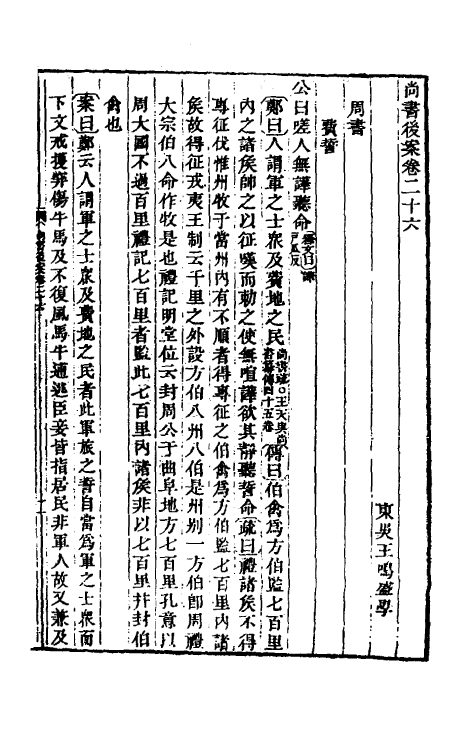 尚書後案卷二十六
東吳王鳴盛學
周書
費誓
公曰嗟人無譁聽命釋文曰譁戶瓜反
鄭曰人謂軍之士眾及費地之民尚書疏○王天與尚書纂傳四十五卷傳曰伯禽為方伯監七百里
內之諸侯帥之以征嘆而勑之使無喧譁欲其靜聽誓命疏曰禮諸侯不得
專征伐惟州牧于當州內有不順者得專征之伯禽為方伯監七百里內諸
侯故得征戎夷王制云千里之外設方伯八州八伯是州別一方伯卽周禮
大宗伯八命作牧是也禮記明堂位云封周公于曲阜地方七百里孔意以
周大國不過百里禮記七百里者監此七百里內諸侯非以七百里幷封伯
禽也
案曰鄭云人謂軍之士眾及費地之民者此軍旅之誓自當為軍之士眾而
下文戒擭穽傷牛馬及不復風馬牛逋逃臣妾皆指居民非軍人故又兼及